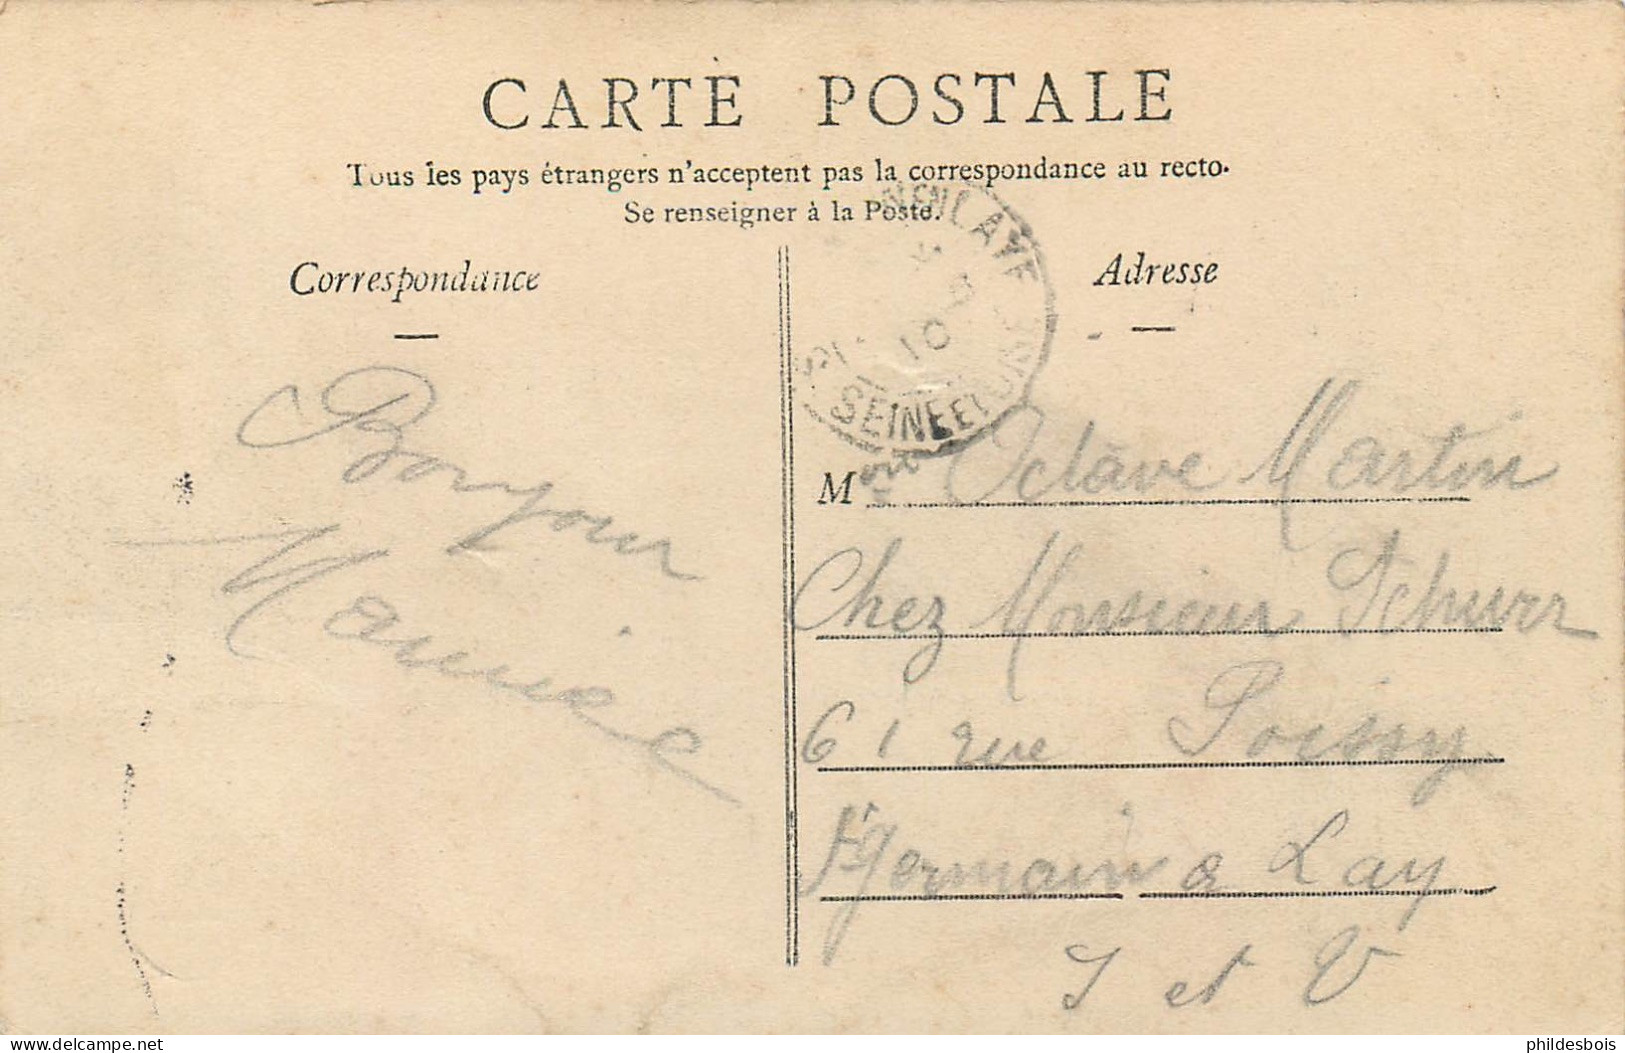 CARTE POSTALE
Tous les pays étrangers n'acceptent pas la correspondance au recto.
Se renseigner à la Poste.
Correspondance
Adresse
EN LAYE
10
SEINE ET OISE
Bonjour
M
Octave Martin
Chez Monsieur Schurr
61 rue Poissy
St Germain a Lay
S et O
delcampe.net
phildesbois